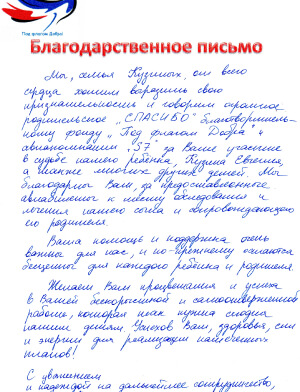 Под флагом Добра!
Благодарственное письмо
Мы, семья Кузиных, от всего
сердца хотим выразить свою
признательность и говорим огромное
родительское „СПАСИБО" благотворитель-
ному фонду „Под флагом Добра" и
авиакомпании „S7" за Ваше участие
в судьбе нашего ребенка, Кузина Евгения,
а также многих других детей. Мы
благодарны Вам, за предоставленные
авиабилеты к месту обследования и
лечения нашего сына и сопровождающего
его родителя.
Ваша помощь и поддержка очень
важна для нас, и по-прежнему остаются
бесценны для каждого ребёнка и родителя.
Желаем Вам процветания и успеха
в Вашей бескорыстной и самоотверженной
работе, которая так нужна сегодня
нашим детям. Успехов Вам, здоровья, сил
и энергии для реализации намеченных
планов!
С уважением
и надеждой на дальнейшее сотрудничество,